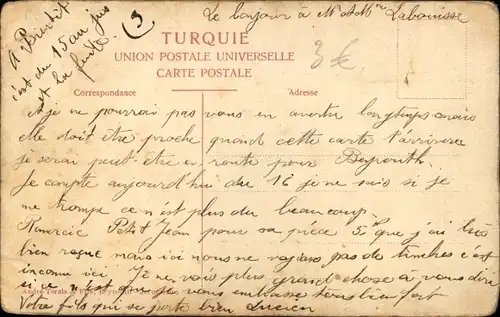 Le bonjour à Mr & Mme Labouisse
A Bientôt
c'est du 15 au jus
et la fuite
3
TURQUIE
UNION POSTALE UNIVERSELLE
CARTE POSTALE
3 €
Correspondance
Adresse
et je ne pourrai pas vous en avertir longtemps mais
elle doit être proche quand cette carte t'arrivera
je serai peut être en route pour Beyrouth.
Je compte aujourd'hui du 16 je ne sais si je
me trompe ce n'est plus du beaucoup.
Remercie Petit Jean pour sa pièce 5f que j'ai très
bien reçue mais ici nous ne pas de timbres c'est
inconnu ici. Je ne vois plus grand chose à vous dire
si ce n'est que je vous embrasse tous bien fort
Votre fils qui se porte bien Lucien